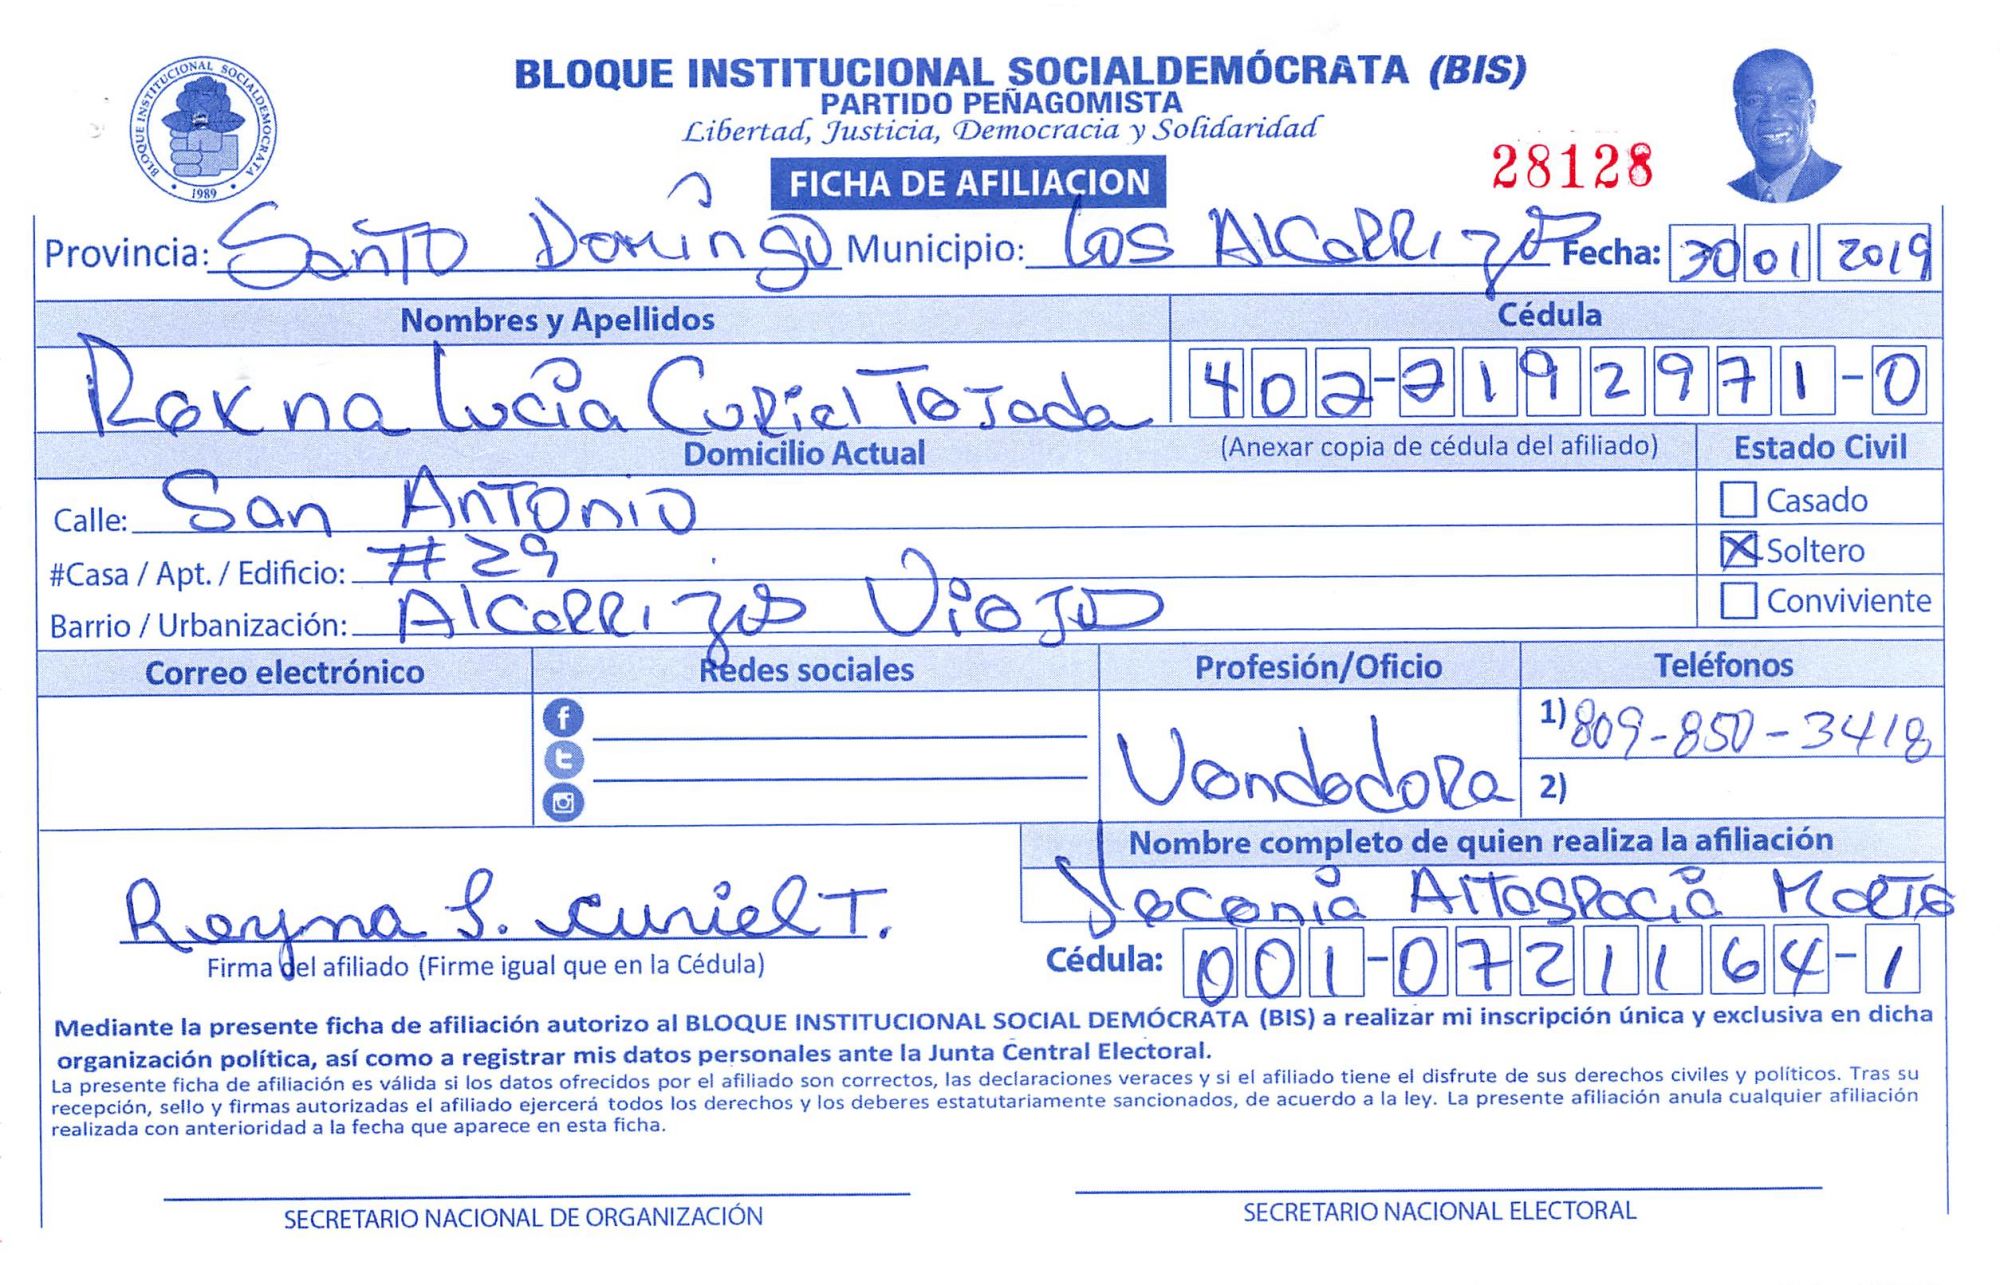 BLOQUE INSTITUCIONAL SOCIALDEMOCRATA
1989
BLOQUE INSTITUCIONAL SOCIALDEMÓCRATA (BIS)
PARTIDO PEÑAGOMISTA
Libertad, Justicia, Democracia y Solidaridad
FICHA DE AFILIACION
28128
Provincia: Santo Domingo Municipio: Los Alcarrizos Fecha: 30 01 2019
Nombres y Apellidos Cédula
Lucia Curiel Tejada 402-2192971-0
Domicilio Actual (Anexar copia de cédula del afiliado) Estado Civil
Calle: San Antonio Casado
#Casa / Apt. / Edificio: #29 X Soltero
Barrio / Urbanización: Alcarrizos Viejo Conviviente
Correo electrónico Redes sociales Profesión/Oficio Teléfonos
Vendedora 1) 809-850-3418
2)
Nombre completo de quien realiza la afiliación
Altagracia
Reyna L. Curiel T.
Firma del afiliado (Firme igual que en la Cédula) Cédula: 001-0721164-1
Mediante la presente ficha de afiliación autorizo al BLOQUE INSTITUCIONAL SOCIAL DEMÓCRATA (BIS) a realizar mi inscripción única y exclusiva en dicha
organización política, así como a registrar mis datos personales ante la Junta Central Electoral.
La presente ficha de afiliación es válida si los datos ofrecidos por el afiliado son correctos, las declaraciones veraces y si el afiliado tiene el disfrute de sus derechos civiles y políticos. Tras su
recepción, sello y firmas autorizadas el afiliado ejercerá todos los derechos y los deberes estatutariamente sancionados, de acuerdo a la ley. La presente afiliación anula cualquier afiliación
realizada con anterioridad a la fecha que aparece en esta ficha.
SECRETARIO NACIONAL DE ORGANIZACIÓN SECRETARIO NACIONAL ELECTORAL